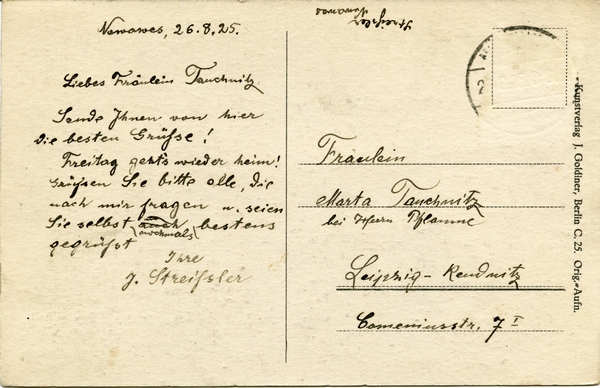 Nowawes, 26.8.25.
Liebes Fräulein Tauchnitz
Sende Ihnen von hier
die besten Grüsse!
Freitag geht's wieder heim!
Grüssen Sie bitte alle, die
nach mir fragen u. seien
Sie selbst auch bestens
nochmals
gegrüsst
Ihre
J. Streissler
Streissler
Nowawes
Fräulein
Marta Tauchnitz
bei Herrn Pflamme
Leipzig-Reudnitz
Comeniusstr. 7 I
Kunstverlag J. Goldiner, Berlin C. 25. Orig.-Aufn.